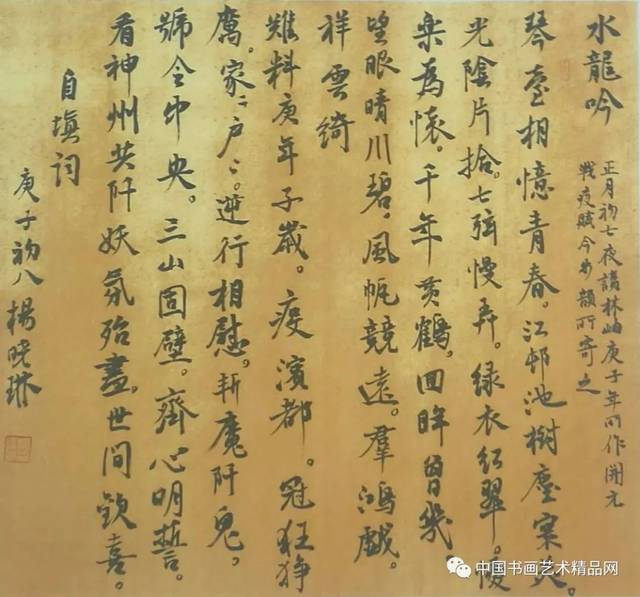 水龍吟
正月初七夜讀林岫庚子年所作開元
戰疫賦今步韻所寄之
琴臺相憶青春。江邨池樹塵案火。
光陰片拾。七弦慢弄。绿衣红翠。暖
樂為懷。千年黄鶴。回眸曾幾。
望眼晴川碧。風帆競遠。羣鴻戲。
祥雲綺
難料庚年子歲。疫濱都。冠狂狰
厲。家〻户〻。逆行相慰。斬魔阡鬼。
號令中央。三山固壁。齊心明誓。
看神州共阡妖氛殆盡。世間欽喜。
自填词
庚子初八楊晓琳
中国书画艺术精品网